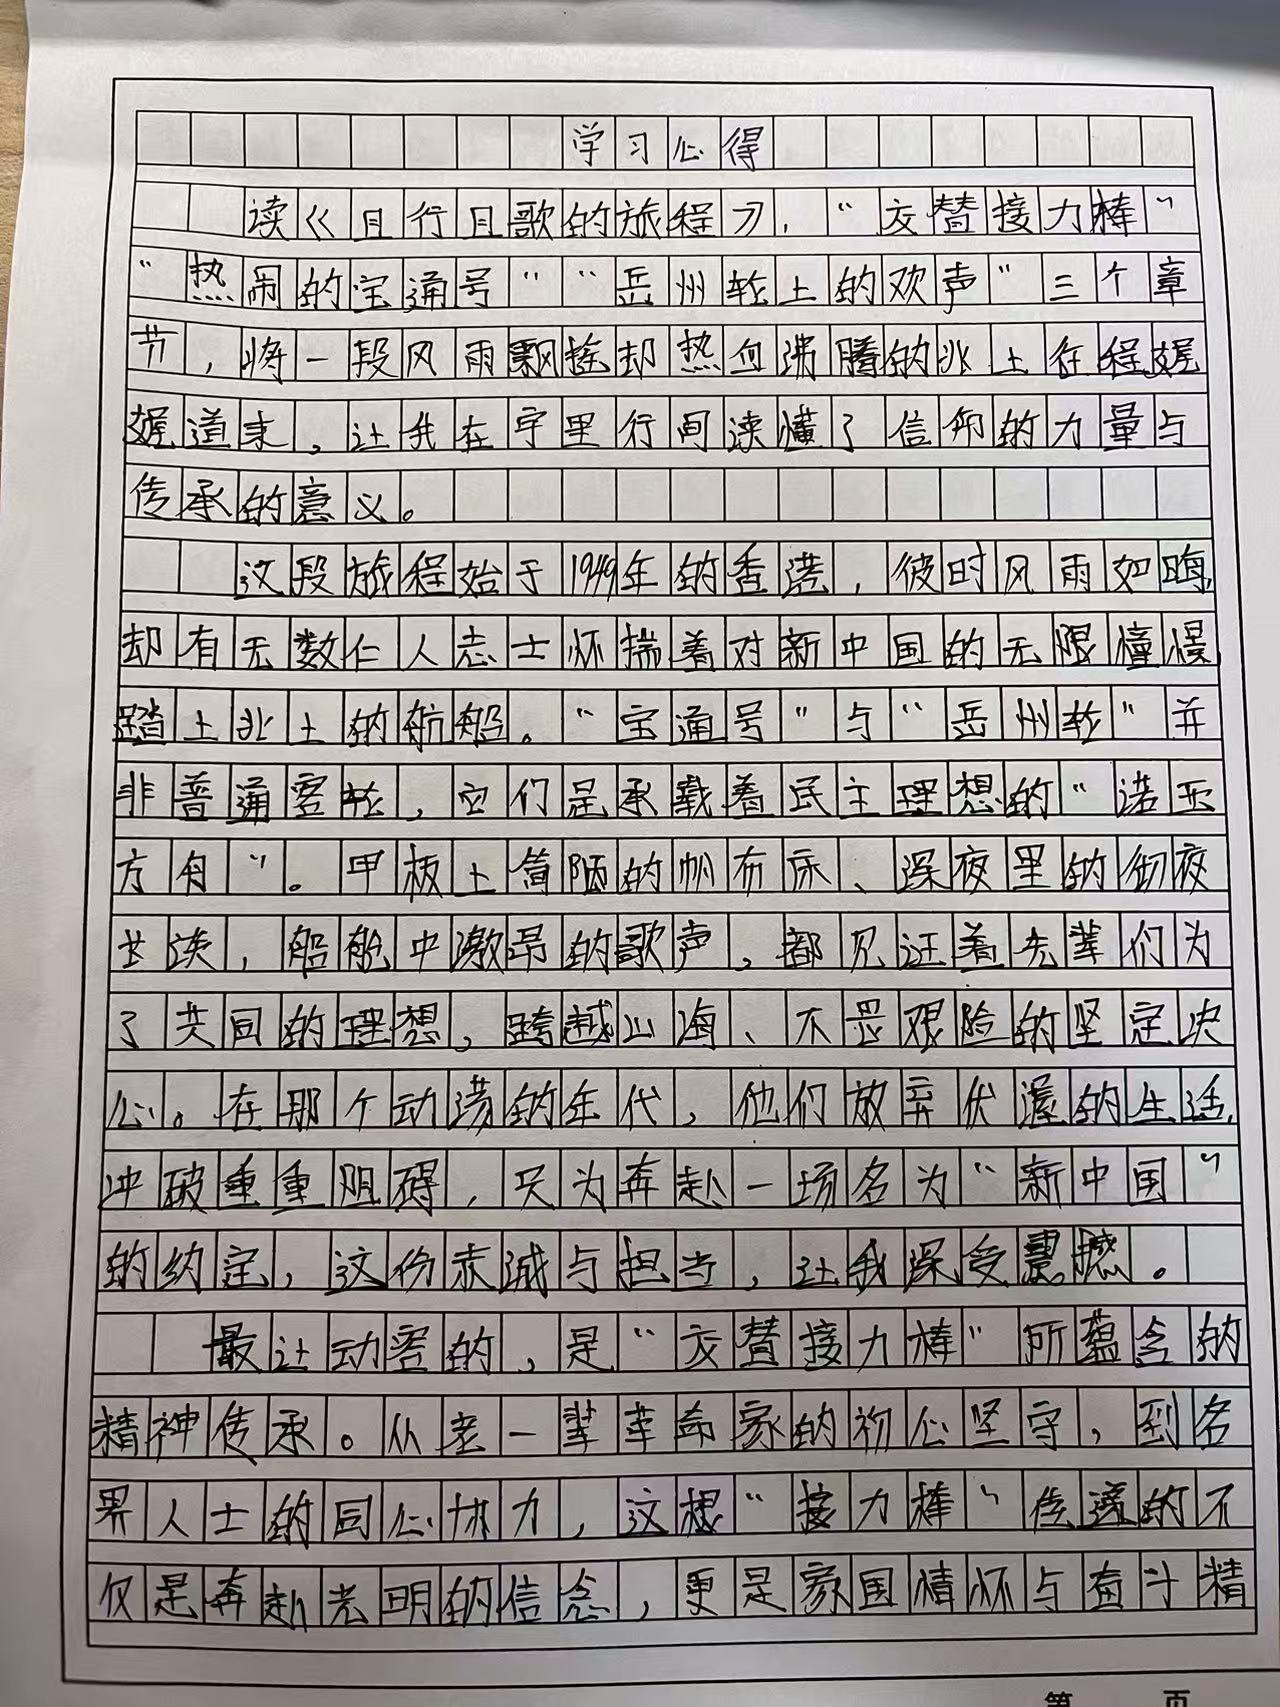 学习心得
读《且行且歌的旅程》，“交替接力棒”
“热闹的宝通号”“岳州轮上的欢声”三个章
节，将一段风雨飘摇却热血沸腾的北上征程娓
娓道来，让我在字里行间读懂了信仰的力量与
传承的意义。
这段旅程始于1949年的香港，彼时风雨如晦，
却有无数仁人志士怀揣着对新中国的无限憧憬
踏上北上的航船。“宝通号”与“岳州轮”并
非普通客轮，它们是承载着民主理想的“诺亚
方舟”。甲板上简陋的帆布床、深夜里的彻夜
长谈，船舱中激昂的歌声，都见证着先辈们为
了共同的理想，跨越山海、不畏艰险的坚定决
心。在那个动荡的年代，他们放弃优渥的生活，
冲破重重阻碍，只为奔赴一场名为“新中国”
的约定，这份赤诚与担当，让我深受震撼。
最让动容的，是“交替接力棒”所蕴含的
精神传承。从老一辈革命家的初心坚守，到各
界人士的同心协力，这根“接力棒”传递的不
仅是奔赴光明的信念，更是家国情怀与奋斗精
第 页